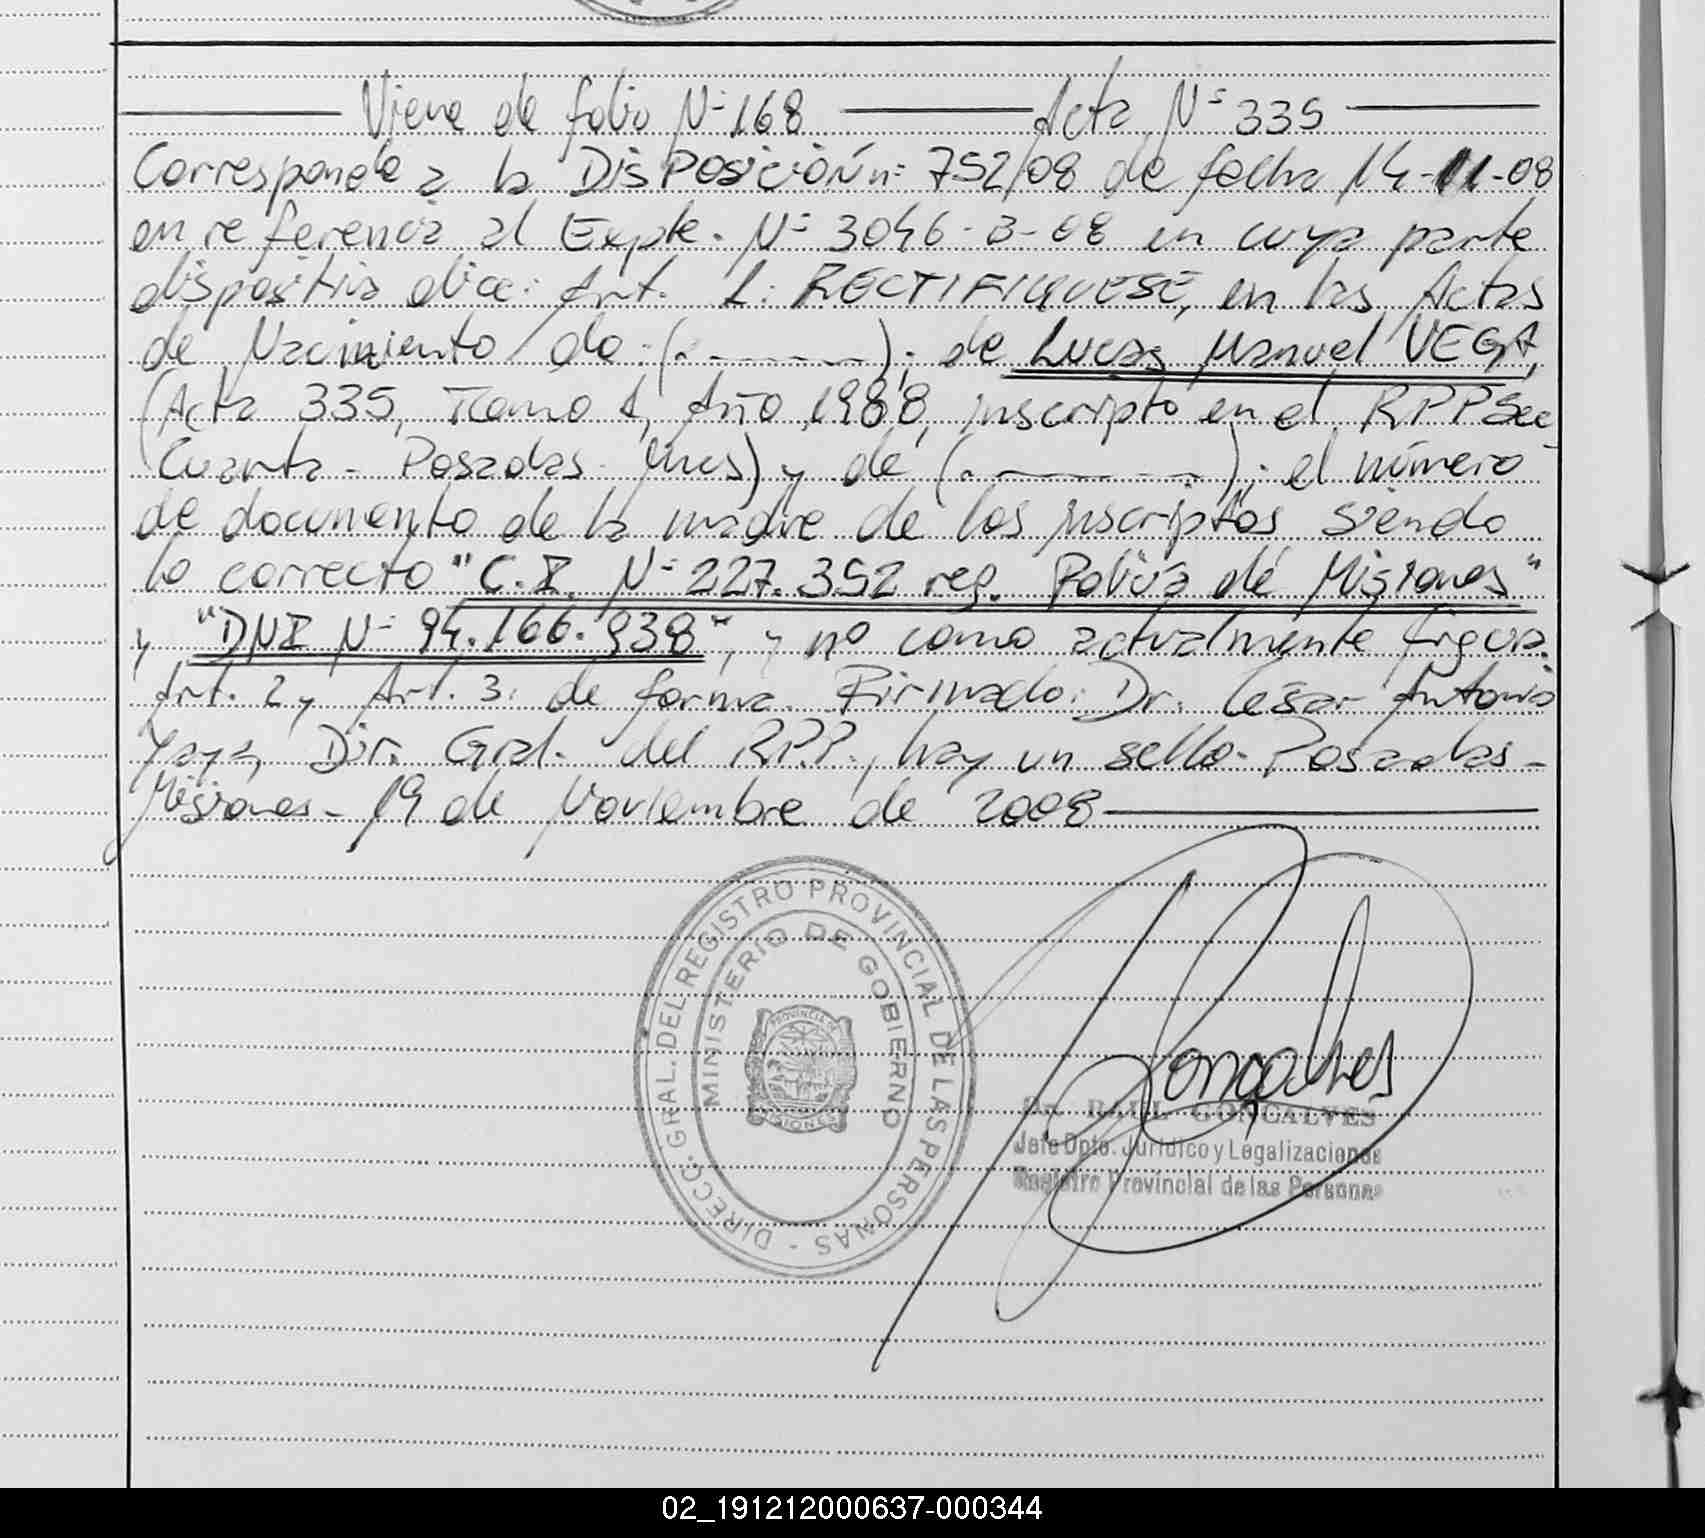 Viene de folio N° 168 Acta N° 335
Corresponde a la DISPOSICIÓN n° 752/08 de fecha 14-11-08
en referencia al Expte. N° 3046-B-08 en cuya parte
dispositiva dice: Art. 1: RECTIFIQUESE, en las Actas
de Nacimiento de (.------); de Lucas Manuel VEGA,
(Acta 335, Tomo 1, Año 1988, inscripto en el RPP Sec
Cuarta - Posadas - Mnes) y de (.------); el número
de documento de la madre de los inscriptos siendo
lo correcto "C.I. N° 227.352 reg. Policía de Misiones"
y "DNI N° 94.166.938", y no como actualmente figura.
Art. 2 y Art. 3: de forma. Firmado: Dr. César Antonio
Yaya, Dir. Gral. del R.P.P., hay un sello. Posadas -
Misiones - 19 de Noviembre de 2008
DIRECC. GRAL. DEL REGISTRO PROVINCIAL DE LAS PERSONAS -
MINISTERIO DE GOBIERNO
PROVINCIA DE
MISIONES
Goncalves
Dr. RAUL GONCALVES
Jefe Dpto. Jurídico y Legalizaciones
Registro Provincial de las Personas
02_191212000637-000344